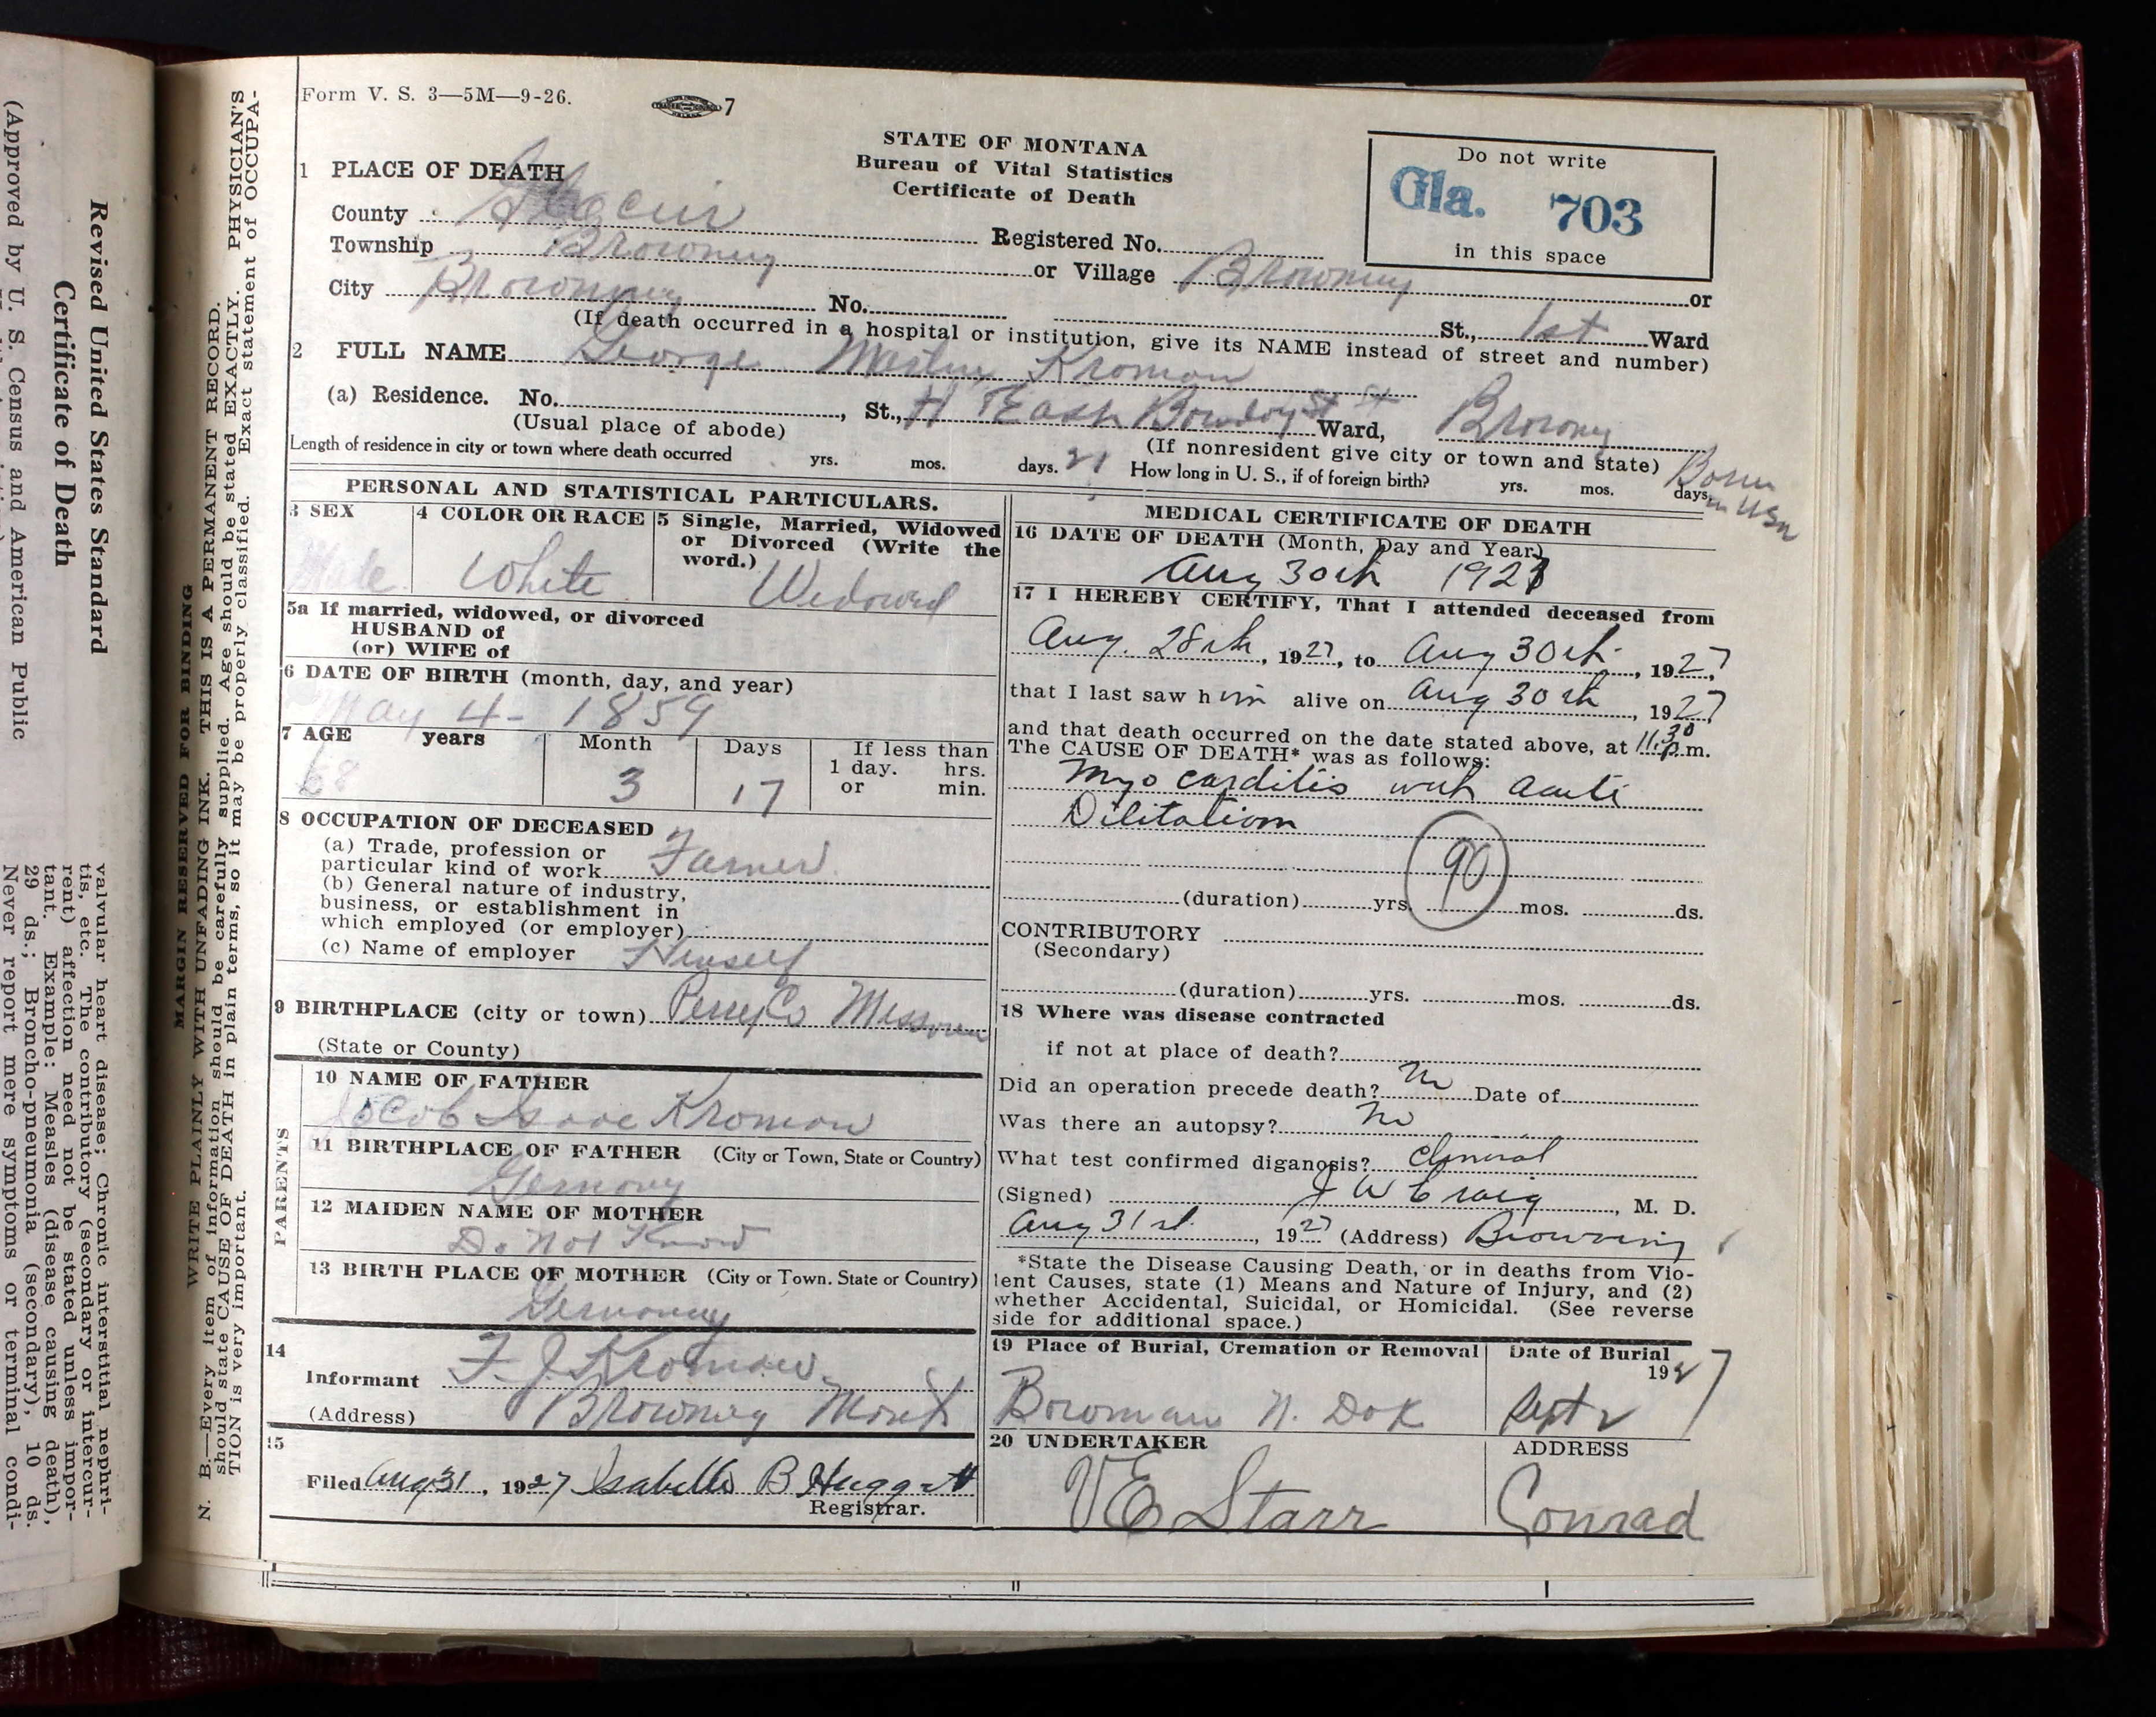 (Approved by U. S. Census and American Public
Revised United States Standard
Certificate of Death
valvular heart disease; Chronic interstitial nephri-
tis, etc. The contributory (secondary or intercur-
rent) affection need not be stated unless impor-
tant. Example: Measles (disease causing death),
29 ds.; Broncho-pneumonia (secondary), 10 ds.
Never report mere symptoms or terminal condi-
MARGIN RESERVED FOR BINDING
WRITE PLAINLY WITH UNFADING INK. THIS IS A PERMANENT RECORD.
N. B.—Every item of information should be carefully supplied. Age should be stated EXACTLY. PHYSICIAN'S
should state CAUSE OF DEATH in plain terms, so it may be properly classified. Exact statement of OCCUPA-
TION is very important.
Form V. S. 3—5M—9-26.
7
STATE OF MONTANA
Bureau of Vital Statistics
Certificate of Death
Do not write
Gla. 703
in this space
1 PLACE OF DEATH
County Glacier Registered No.
Township Browning or Village Browning or
City Browning No. St., 1st Ward
(If death occurred in a hospital or institution, give its NAME instead of street and number)
2 FULL NAME George Kroman
(a) Residence. No. , St., East Ward, Browning
(Usual place of abode) (If nonresident give city or town and state)
Length of residence in city or town where death occurred yrs. mos. days. 21 How long in U. S., if of foreign birth? yrs. mos. days. Born in USA
PERSONAL AND STATISTICAL PARTICULARS.
3 SEX
Male
4 COLOR OR RACE
White
5 Single, Married, Widowed
or Divorced (Write the
word.)
Widowed
5a If married, widowed, or divorced
HUSBAND of
(or) WIFE of
6 DATE OF BIRTH (month, day, and year)
May 4 - 1859
7 AGE years Month Days If less than
1 day. hrs.
or min.
68 3 17
8 OCCUPATION OF DECEASED
(a) Trade, profession or
particular kind of work Farmer
(b) General nature of industry,
business, or establishment in
which employed (or employer)
(c) Name of employer Himself
9 BIRTHPLACE (city or town) Perry Co Missouri
(State or County)
PARENTS
10 NAME OF FATHER
Jacob Isaac Kroman
11 BIRTHPLACE OF FATHER (City or Town, State or Country)
Germany
12 MAIDEN NAME OF MOTHER
Do Not Know
13 BIRTH PLACE OF MOTHER (City or Town. State or Country)
Germany
14
Informant F. J. Kroman
(Address) Browning Mont
15
Filed Aug 31, 1927 Isabelle B Huggett
Registrar.
MEDICAL CERTIFICATE OF DEATH
16 DATE OF DEATH (Month, Day and Year)
Aug 30th 1927
17 I HEREBY CERTIFY, That I attended deceased from
Aug. 28th, 1927, to Aug 30th, 1927
that I last saw him alive on Aug 30th, 1927
and that death occurred on the date stated above, at 11.30 p.m.
The CAUSE OF DEATH* was as follows:
Myocarditis with acute
Dilitation
90
(duration) yrs. mos. ds.
CONTRIBUTORY
(Secondary)
(duration) yrs. mos. ds.
18 Where was disease contracted
if not at place of death?
Did an operation precede death? No Date of
Was there an autopsy? No
What test confirmed diganosis? Clinical
(Signed) J W Craig, M. D.
Aug 31st, 1927 (Address) Browning
*State the Disease Causing Death, or in deaths from Vio-
lent Causes, state (1) Means and Nature of Injury, and (2)
whether Accidental, Suicidal, or Homicidal. (See reverse
side for additional space.)
19 Place of Burial, Cremation or Removal
Bowman N. Dak
Date of Burial
1927
Sept 2
20 UNDERTAKER
V E Starr
ADDRESS
Conrad